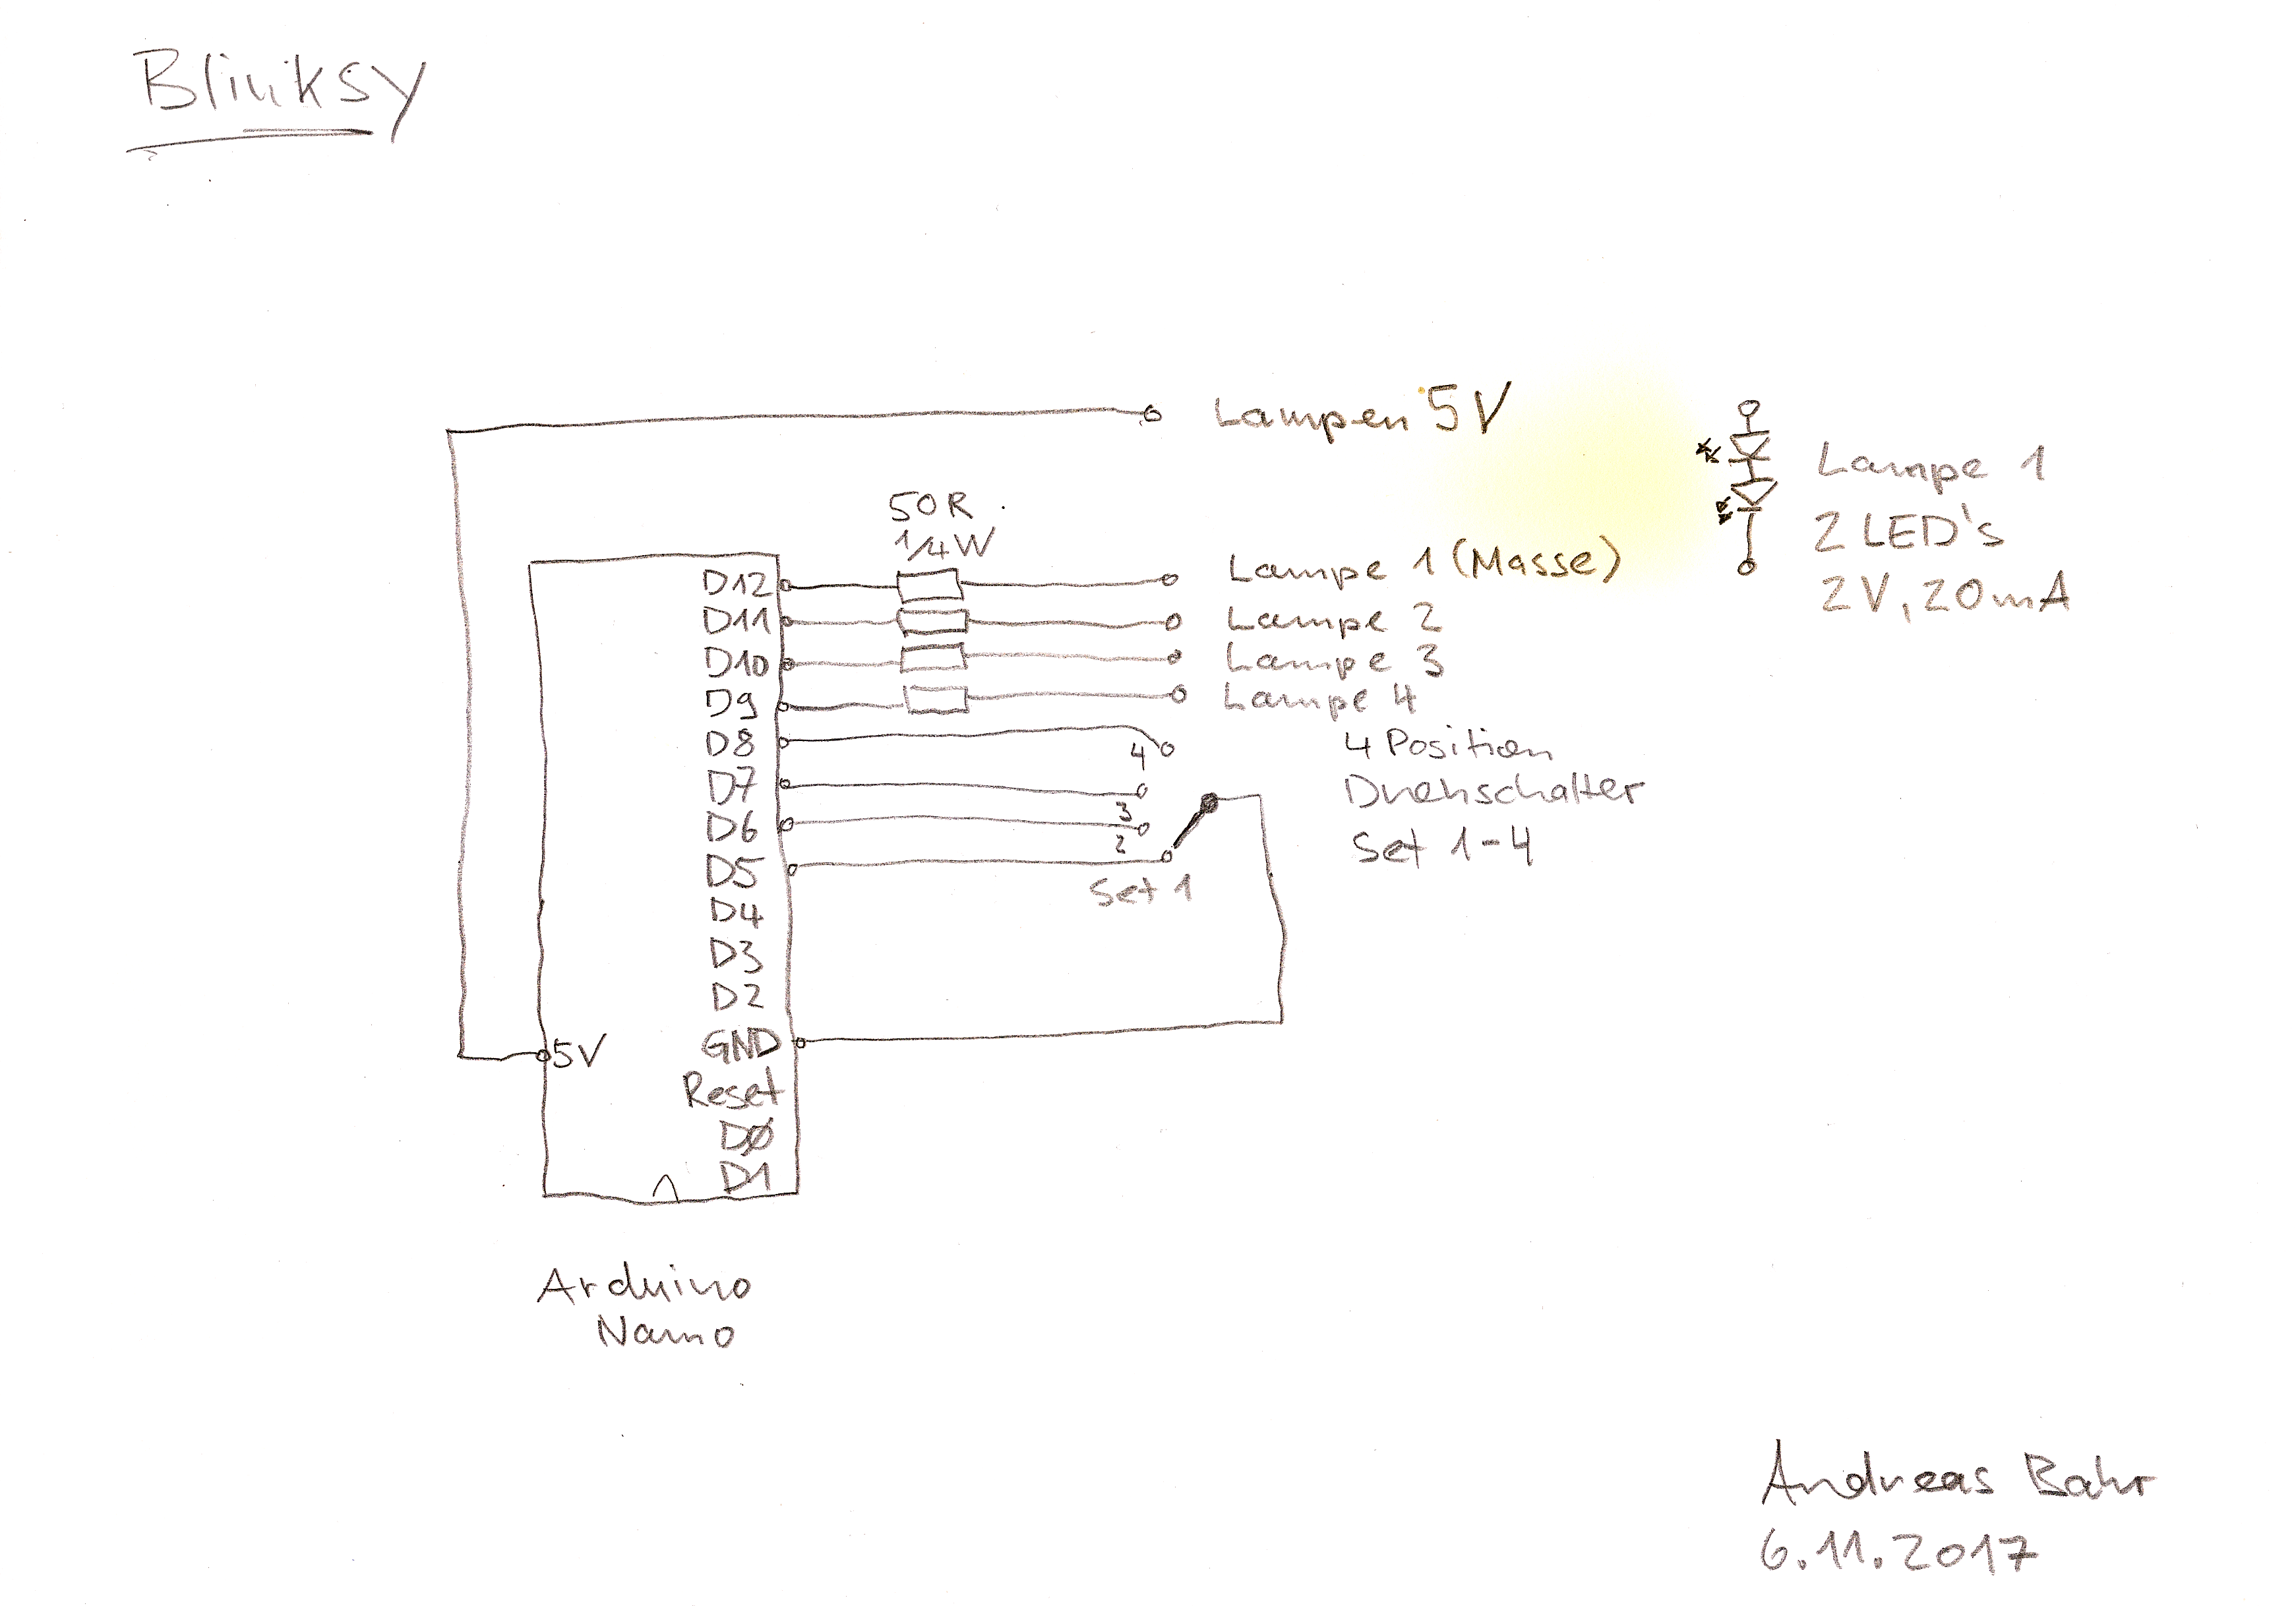 Blinksy
Lampen 5V
Lampe 1
2 LED's
2V, 20mA
50R
1/4W
D12
Lampe 1 (Masse)
D11
Lampe 2
D10
Lampe 3
D9
Lampe 4
D8
4
4 Position
D7
3
Drehschalter
D6
2
Set 1-4
D5
Set 1
D4
D3
D2
5V
GND
Reset
DØ
D1
Arduino
Nano
Andreas Bahr
6.11.2017